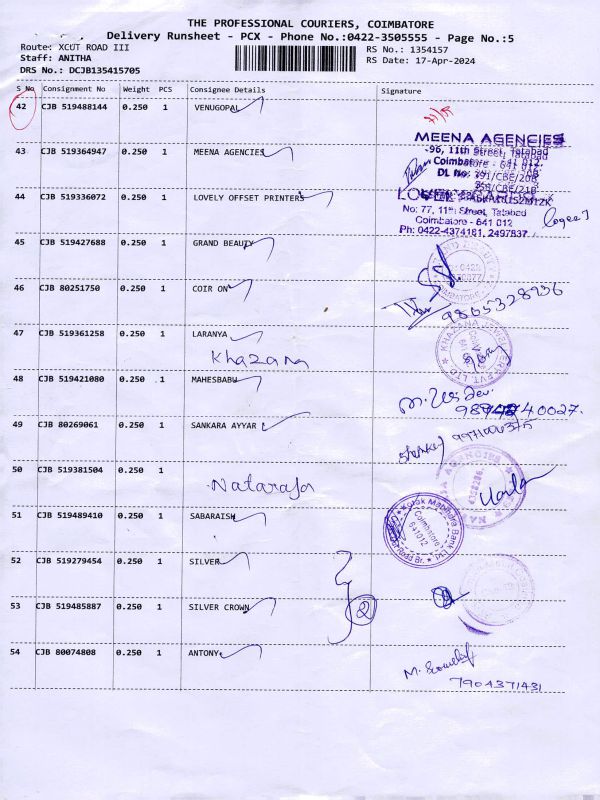 THE PROFESSIONAL COURIERS, COIMBATORE
Delivery Runsheet - PCX - Phone No.:0422-3505555 - Page No.:5
Route: XCUT ROAD III
RS No.: 1354157
Staff: ANITHA
RS Date: 17-Apr-2024
DRS No.: DCJB135415705
S No Consignment No Weight PCS Consignee Details Signature
42 CJB 519488144 0.250 1 VENUGOPAL
43 CJB 519364947 0.250 1 MEENA AGENCIES
MEENA AGENCIES
-96, 11th Street, Tatabad
Coimbatore - 641 012
44 CJB 519336072 0.250 1 LOVELY OFFSET PRINTERS
No: 77, 11th Street, Tatabad
Coimbatore - 641 012
Ph: 0422-4374161, 2497837
45 CJB 519427688 0.250 1 GRAND BEAUTY
46 CJB 80251750 0.250 1 COIR ON
9865328936
47 CJB 519361258 0.250 1 LARANYA
Khazana
48 CJB 519421080 0.250 1 MAHESBABU
49 CJB 80269061 0.250 1 SANKARA AYYAR
50 CJB 519381504 0.250 1
Nataraja
51 CJB 519489410 0.250 1 SABARAISH
Kotak Mahindra Bank Ltd
Coimbatore
641012
52 CJB 519279454 0.250 1 SILVER
53 CJB 519485887 0.250 1 SILVER CROWN
2
54 CJB 80074808 0.250 1 ANTONY
7904371431